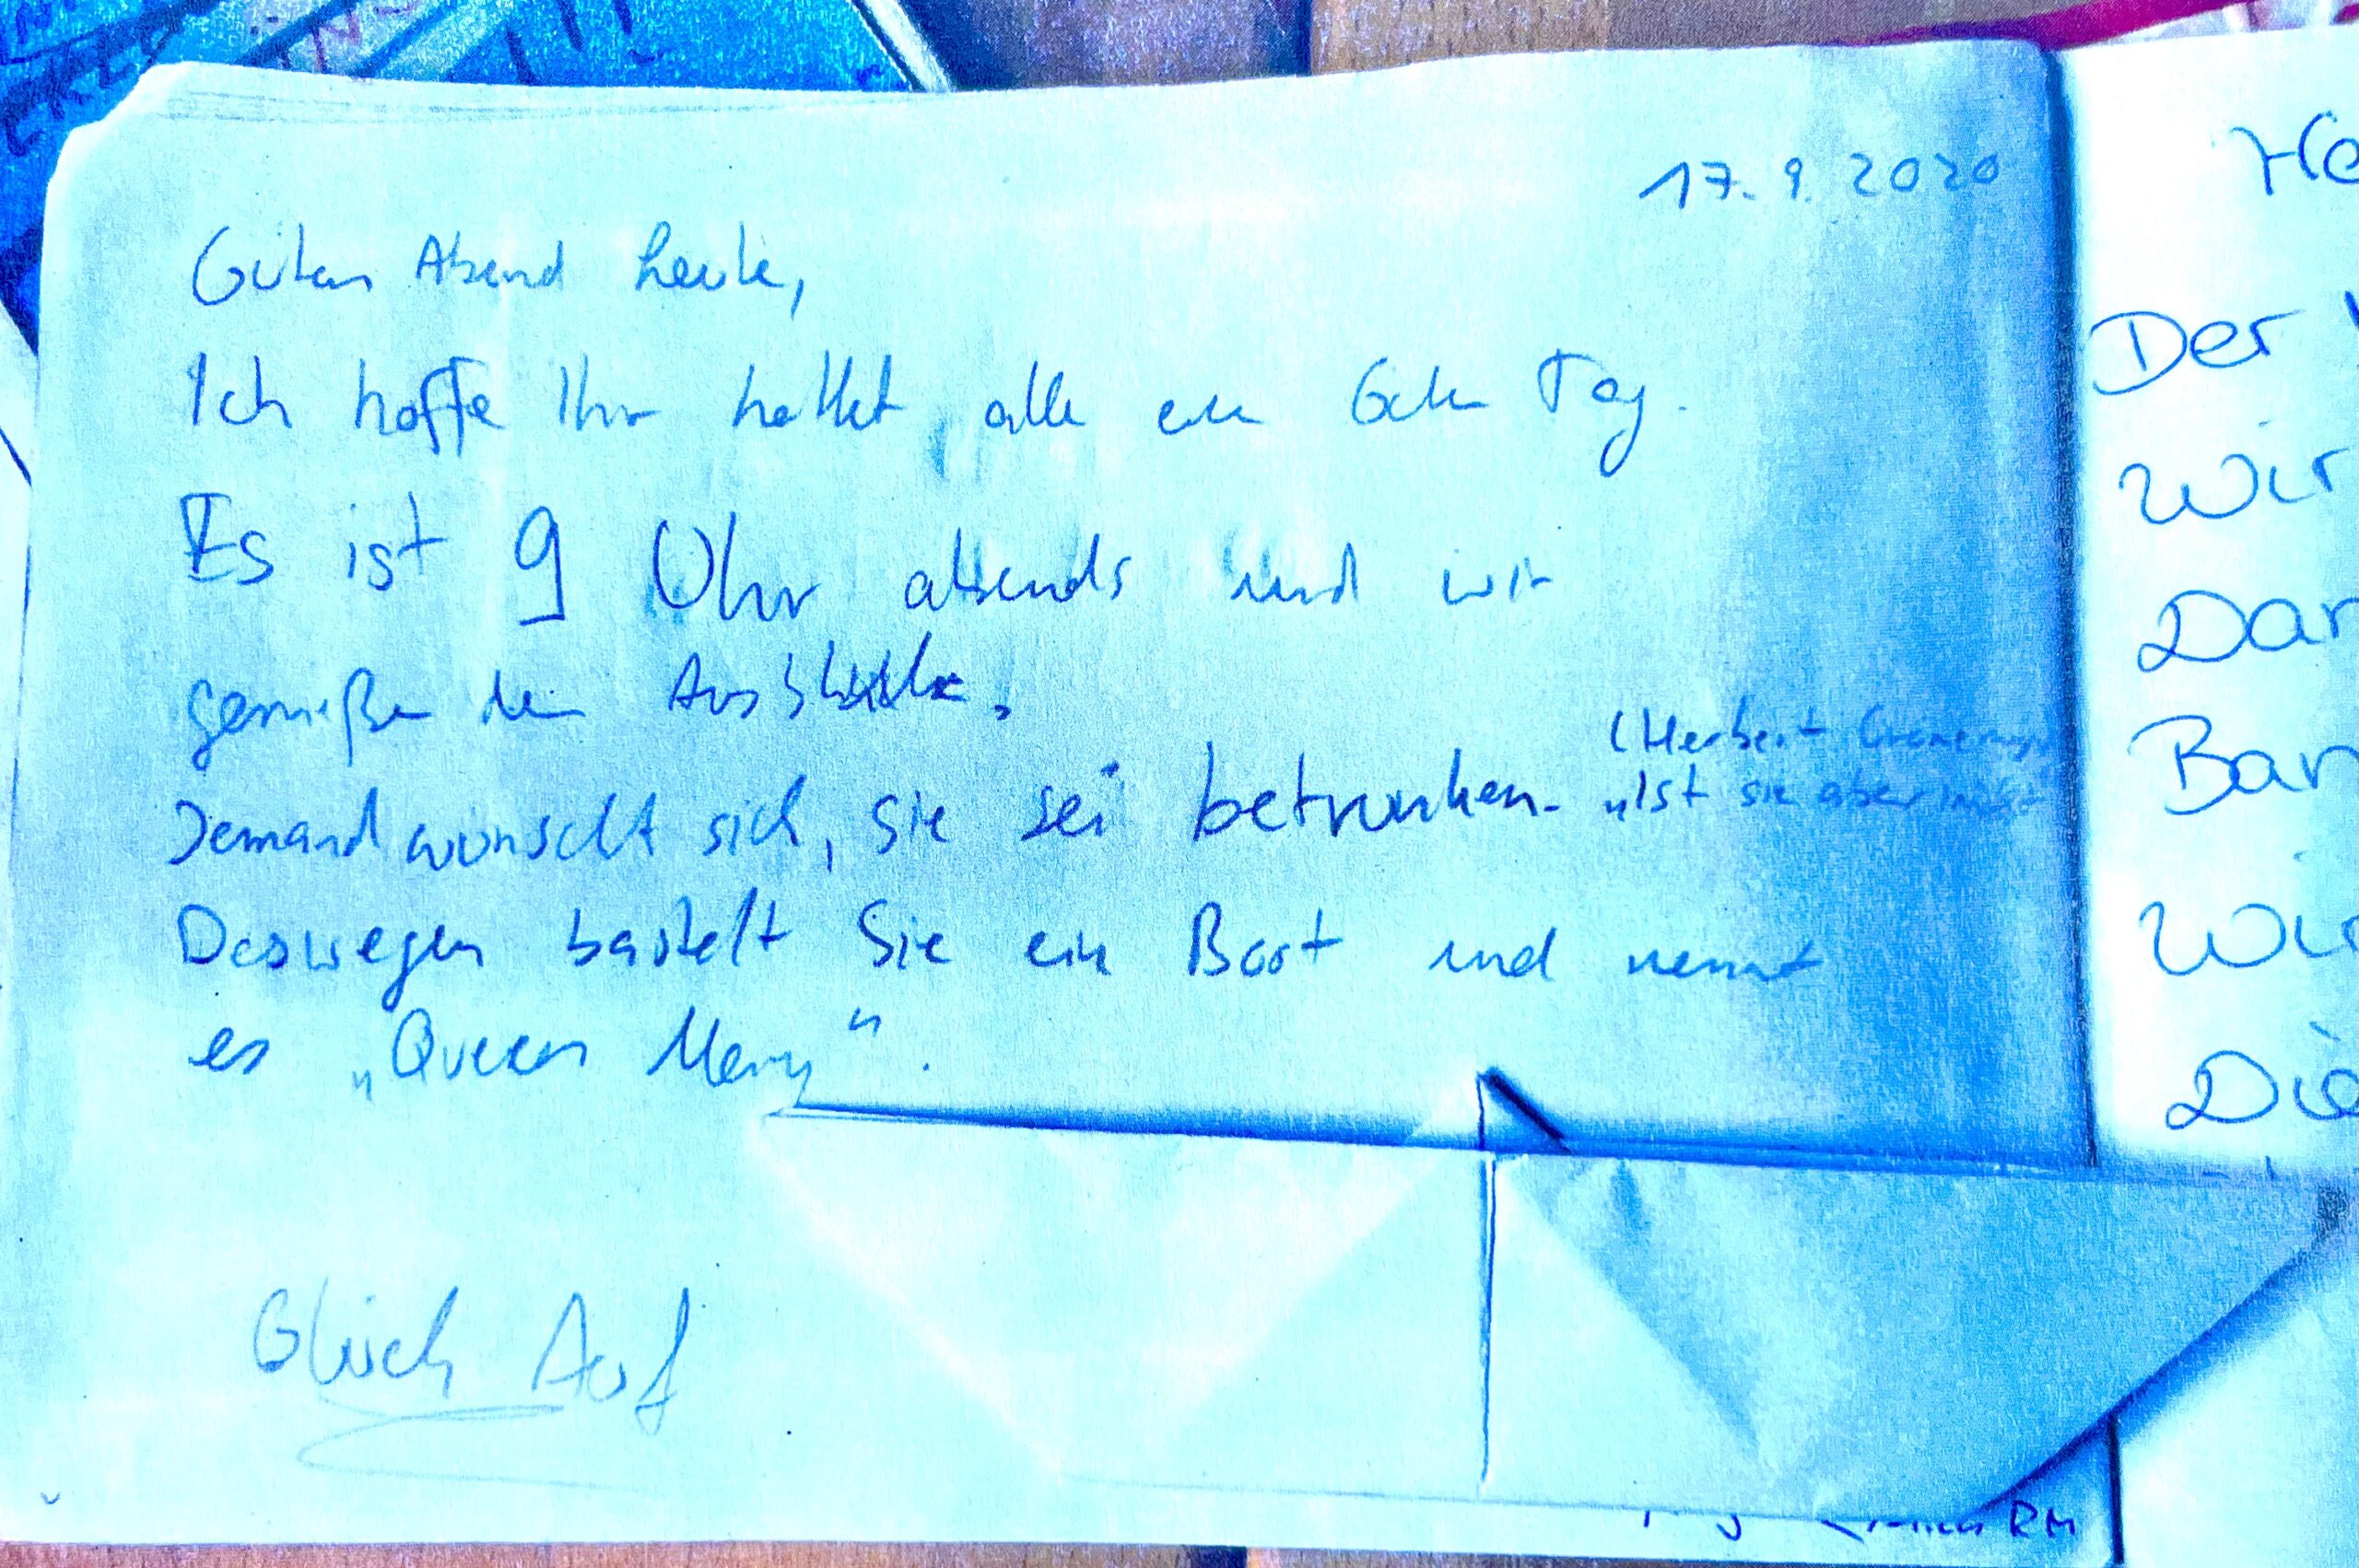 17.9.2020
Guten Abend heute,
Ich hoffe Ihr hattet alle ein Guten Tag.
Es ist 9 Uhr abends und wir
genießen den
(Herbert
Jemand wünscht sich, sie sei betrunken. „Ist sie aber nicht
Deswegen bastelt Sie ein Boot und nennt
es „Queen Mary“.
Glück Auf
RM
He
Der
Wir
Dar
Bar
Wir
Die